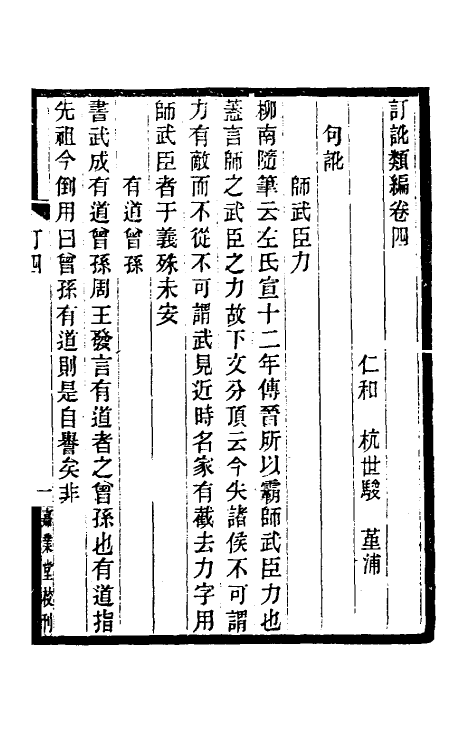 訂訛類編卷四
仁和 杭世駿 堇浦
句訛
師武臣力
柳南隨筆云左氏宣十二年傳晉所以霸師武臣力也
蓋言師之武臣之力故下文分頂云今失諸侯不可謂
力有敵而不從不可謂武見近時名家有截去力字用
師武臣者于義殊未安
有道曾孫
書武成有道曾孫周王發言有道者之曾孫也有道指
先祖今倒用曰曾孫有道則是自譽矣非
訂四
一
嘉業堂校刊